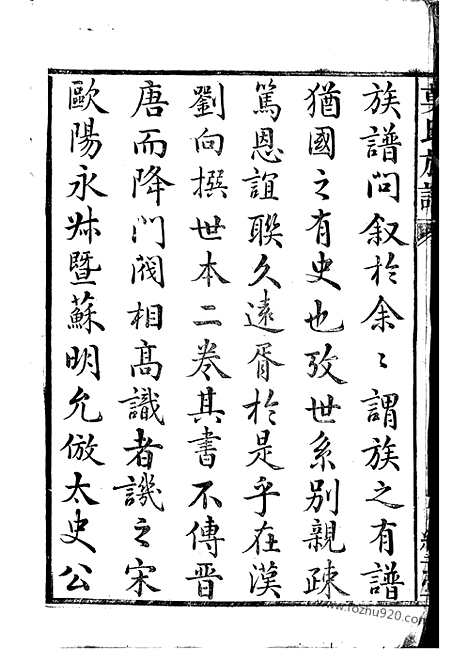 族譜問叙於余〻謂族之有譜
猶國之有史也攷世系別親疎
篤恩誼聯久遠胥於是乎在漢
劉向撰世本二卷其書不傳晉
唐而降門閥相髙識者譏之宋
歐陽永叔暨蘇明允倣太史公
氏族譜
www.fozhu920.com